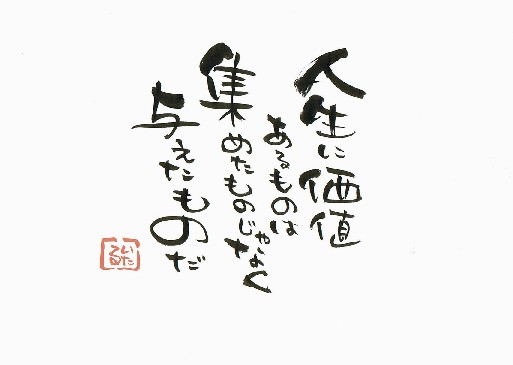 人生に価値
あるものは
集めたものじゃなく
与えたものだ